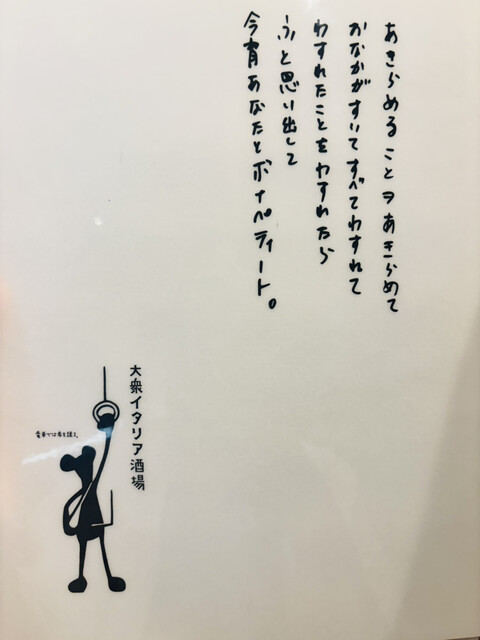 あきらめることヲあきらめて
おなかがすいてすべてわすれて
わすれたことをわすれたら
ふと思い出して
今宵あなたとボナペティート。
大衆イタリア酒場
電車では席を譲る。